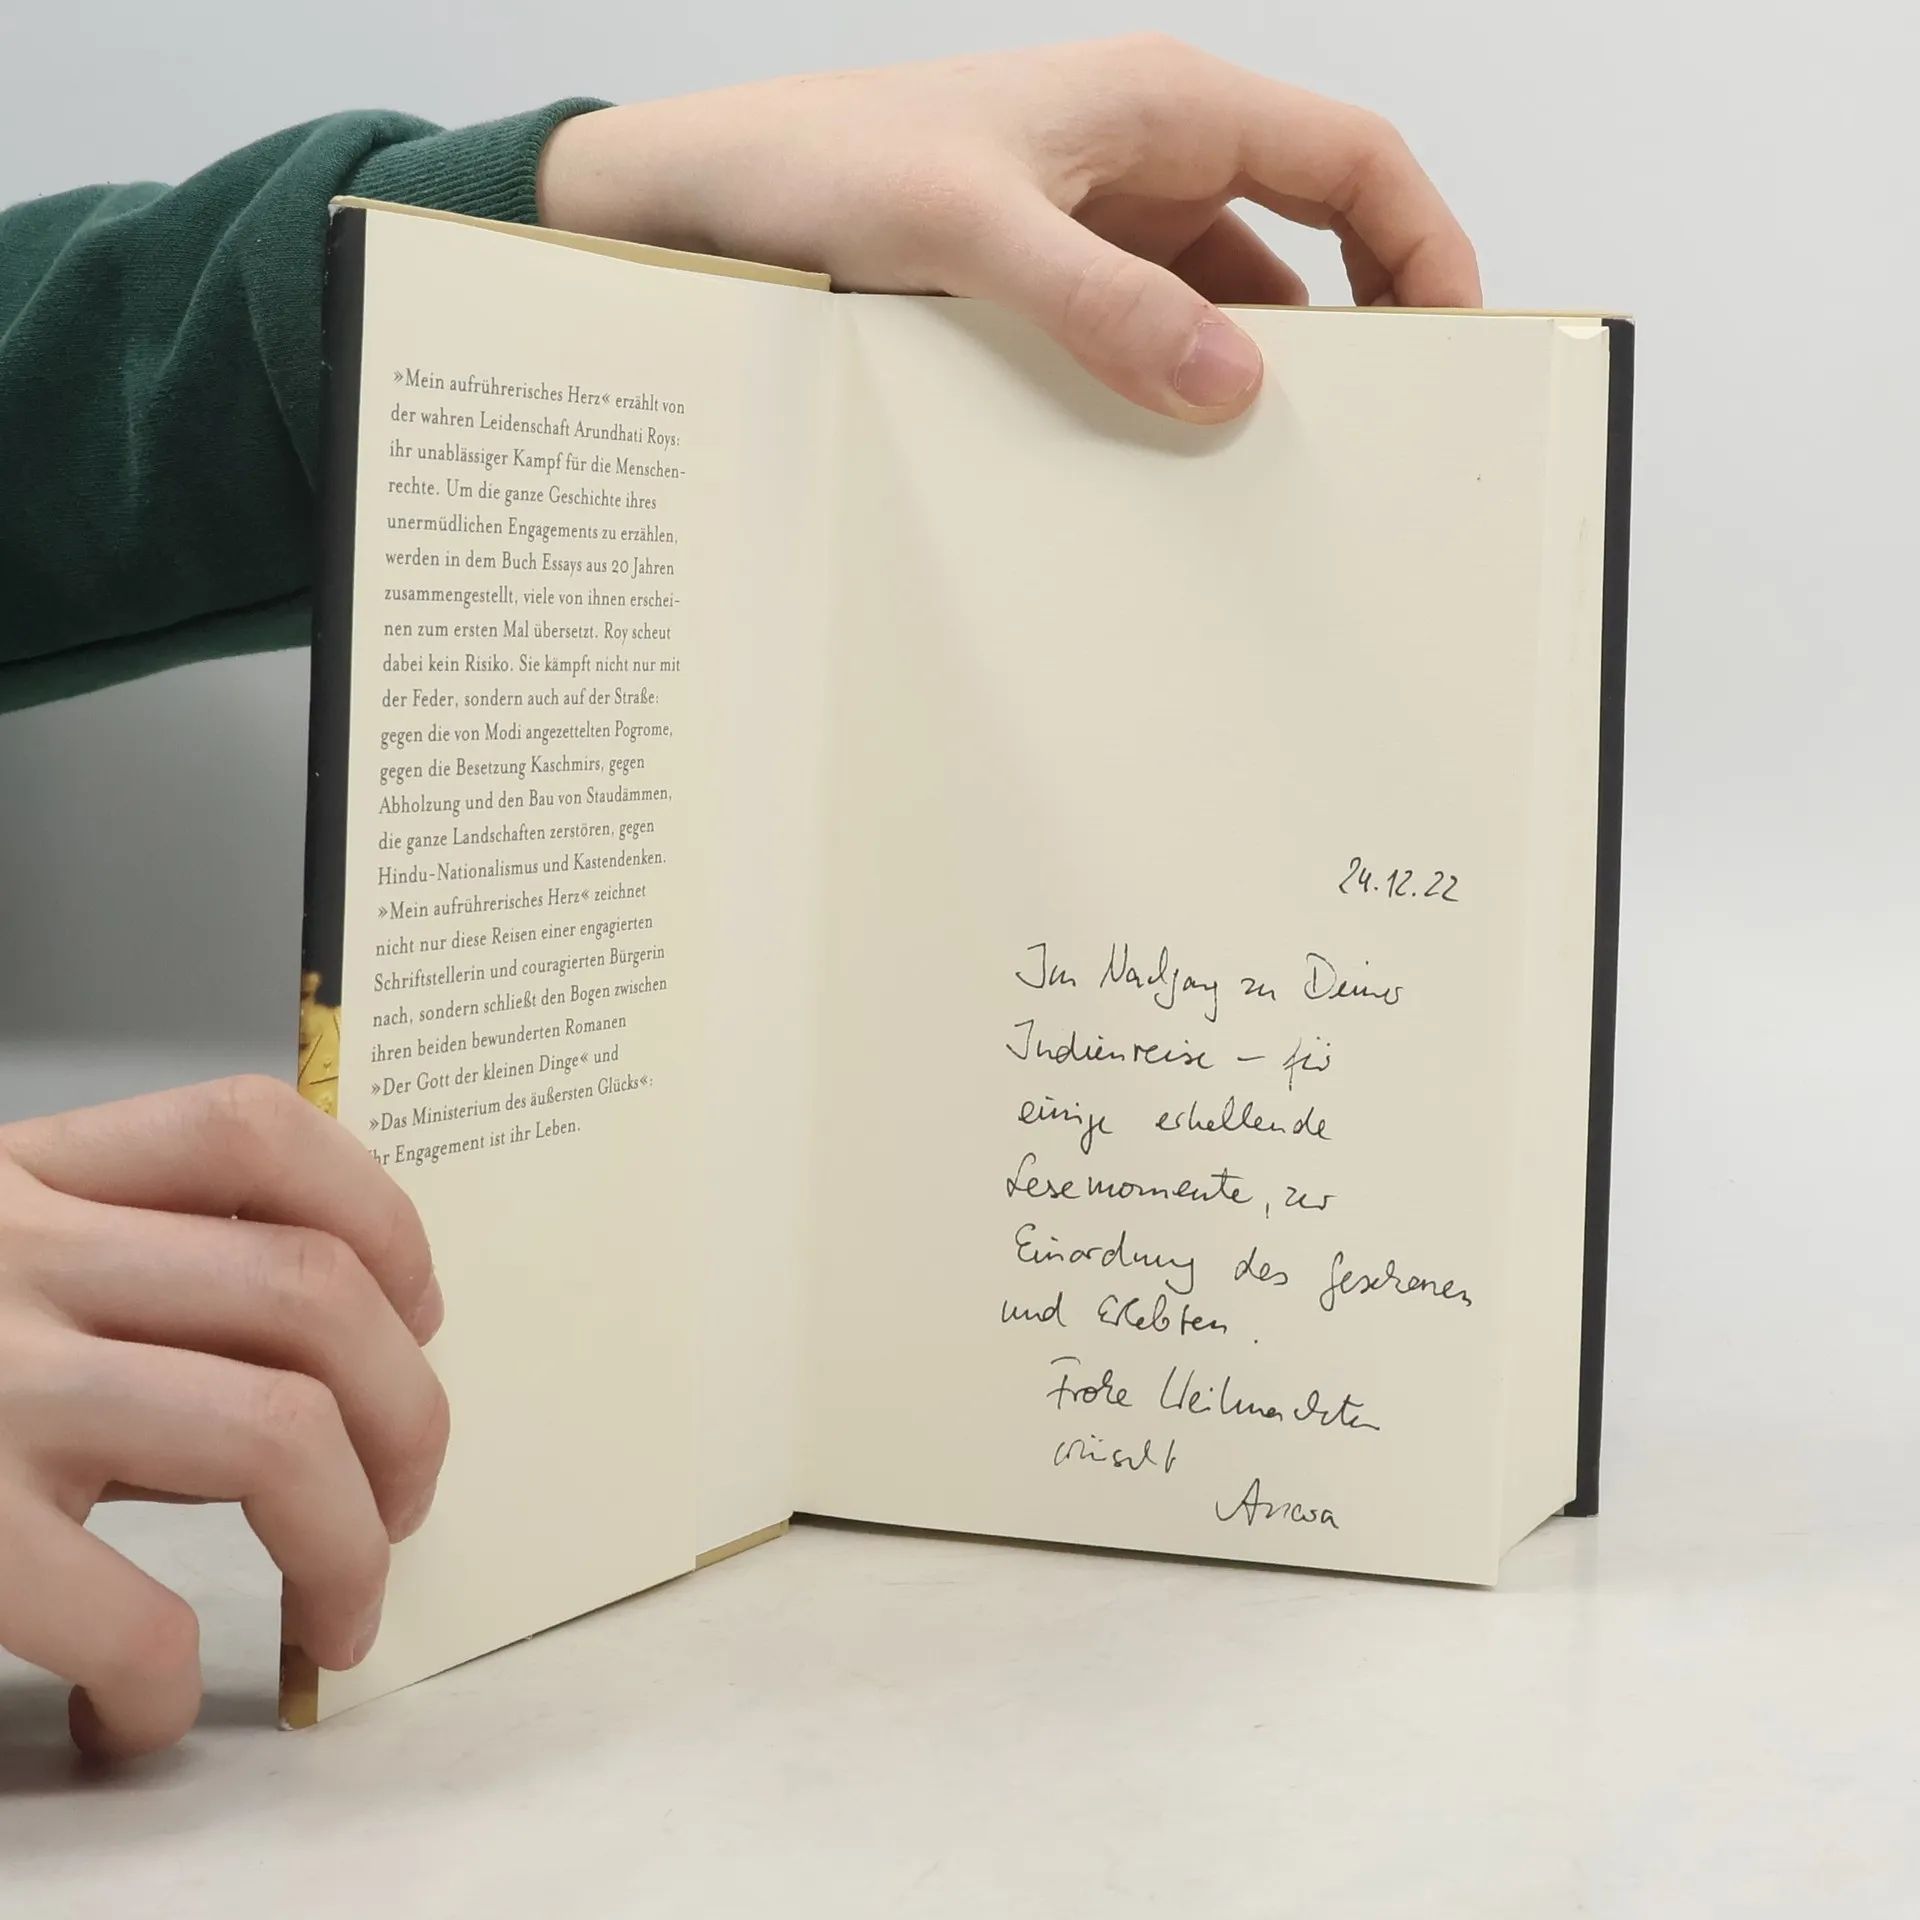 »Mein aufrührerisches Herz« erzählt von
der wahren Leidenschaft Arundhati Roys:
ihr unablässiger Kampf für die Menschen-
rechte. Um die ganze Geschichte ihres
unermüdlichen Engagements zu erzählen,
werden in dem Buch Essays aus 20 Jahren
zusammengestellt, viele von ihnen erschei-
nen zum ersten Mal übersetzt. Roy scheut
dabei kein Risiko. Sie kämpft nicht nur mit
der Feder, sondern auch auf der Straße:
gegen die von Modi angezettelten Pogrome,
gegen die Besetzung Kaschmirs, gegen
Abholzung und den Bau von Staudämmen,
die ganze Landschaften zerstören, gegen
Hindu-Nationalismus und Kastendenken.
»Mein aufrührerisches Herz« zeichnet
nicht nur diese Reisen einer engagierten
Schriftstellerin und couragierten Bürgerin
nach, sondern schließt den Bogen zwischen
ihren beiden bewunderten Romanen
»Der Gott der kleinen Dinge« und
»Das Ministerium des äußersten Glücks«:
Ihr Engagement ist ihr Leben.
24.12.22
Im Nachgang zu Deiner
Indienreise – für
einige erhellende
Lesemomente, zur
Einordnung des Gesehenen
und Erlebten.
Frohe Weihnachten
wünscht